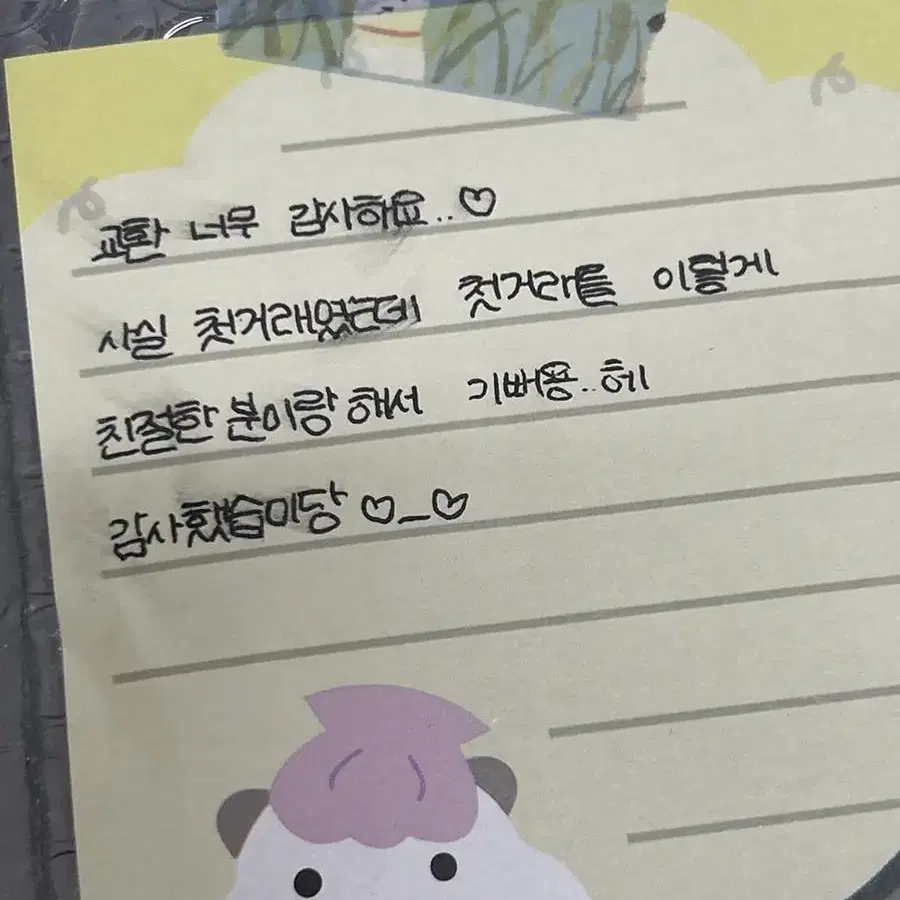 교환 너무 감사하요..♡
사실 첫거래였는데 첫거라를 이렇게
친절한 분이랑 해서 기뻐용..헤
감사했습미당 ♡_♡